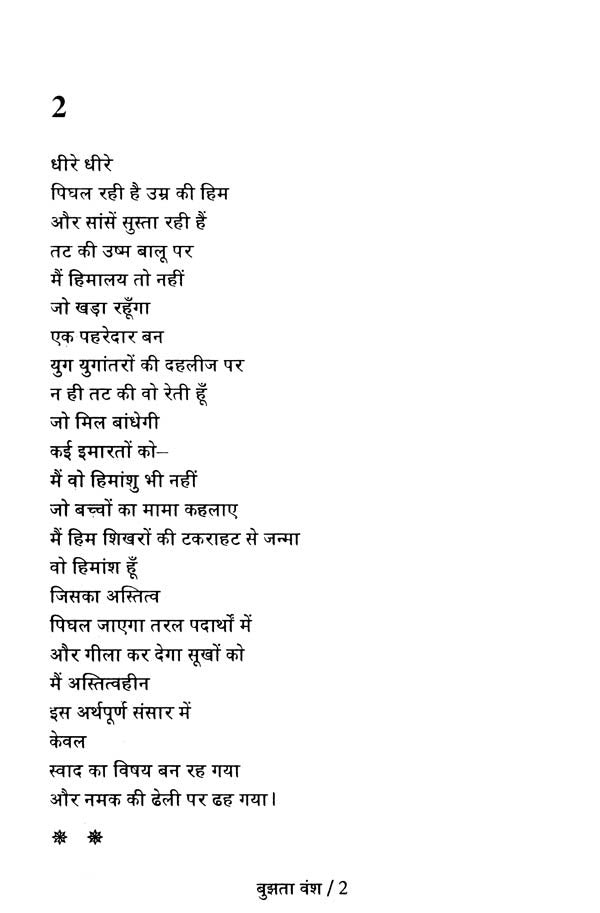 2
धीरे धीरे
पिघल रही है उम्र की हिम
और सांसें सुस्ता रही हैं
तट की उष्म बालू पर
मैं हिमालय तो नहीं
जो खड़ा रहूँगा
एक पहरेदार बन
युग युगांतरों की दहलीज पर
न ही तट की वो रेती हूँ
जो मिल बांधेगी
कई इमारतों को–
मैं वो हिमांशु भी नहीं
जो बच्चों का मामा कहलाए
मैं हिम शिखरों की टकराहट से जन्मा
वो हिमांश हूँ
जिसका अस्तित्व
पिघल जाएगा तरल पदार्थों में
और गीला कर देगा सूखों को
मैं अस्तित्वहीन
इस अर्थपूर्ण संसार में
केवल
स्वाद का विषय बन रह गया
और नमक की ढेली पर ढह गया।
बुझता वंश / 2